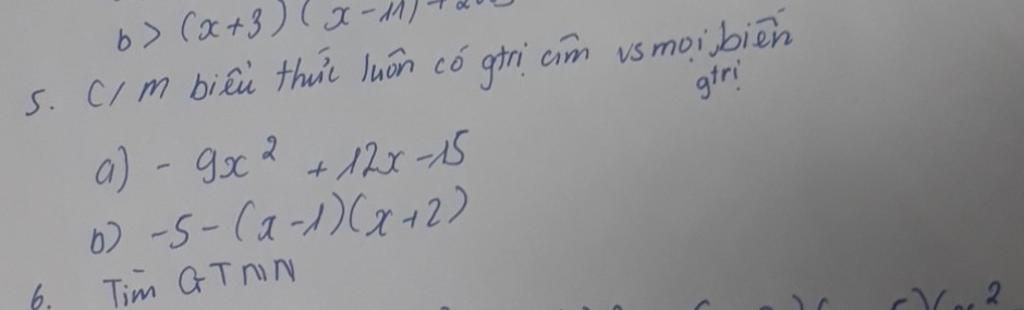 b> (x+3)(x-11)
5. C/m biểu thức luôn có gtrị âm vs mọi, biến
gtrị
a) - 9x² + 12x - 15
b) -5 - (x-1)(x+2)
6. Tìm GTNN